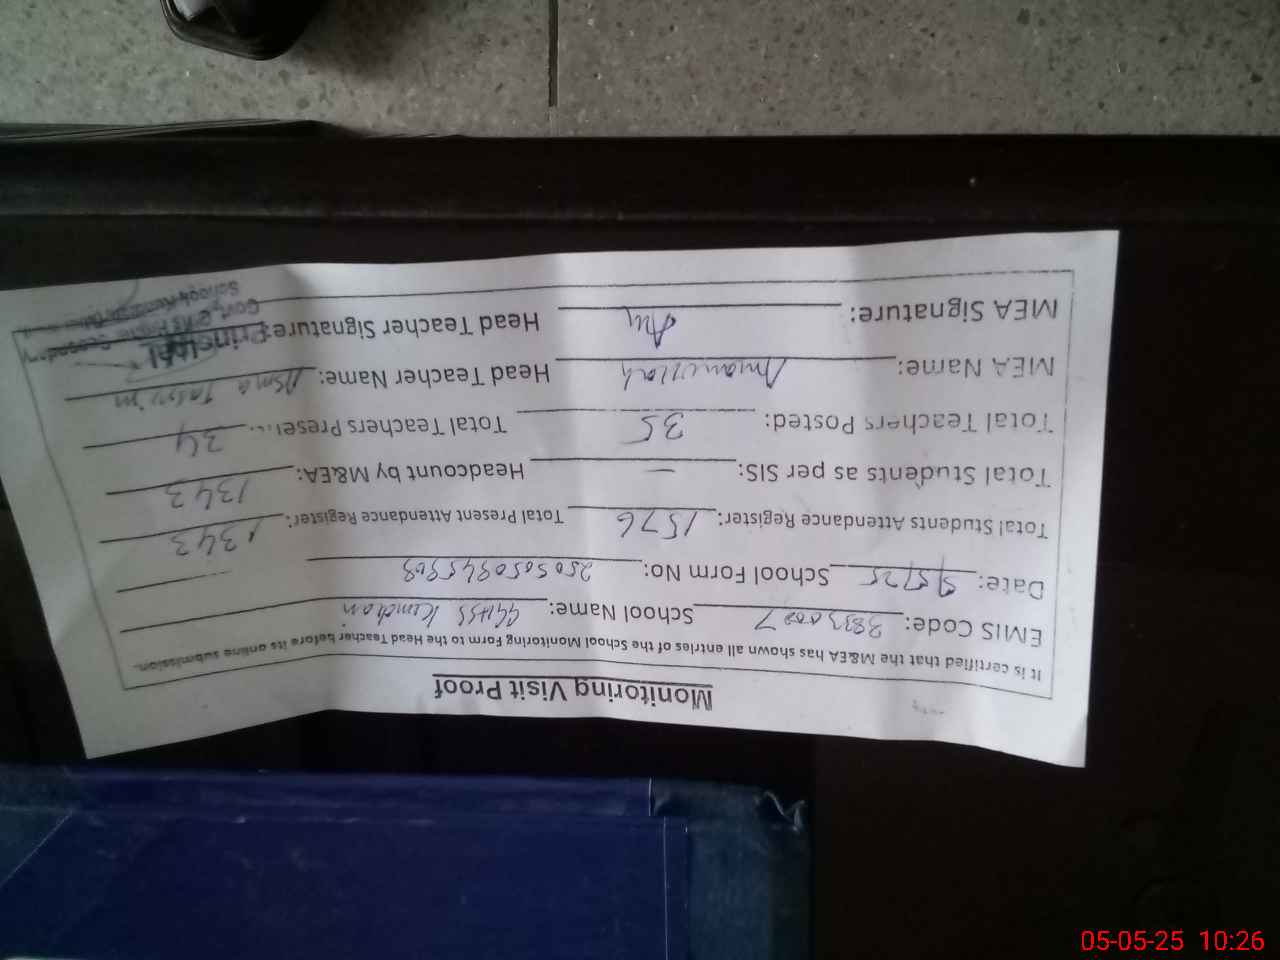 Monitoring Visit Proof
It is certified that the M&EA has shown all entries of the School Monitoring Form to the Head Teacher before its online submission.
EMIS Code: 38330007 School Name: GGHSS Kundian
Date: 5/5/25 School Form No: 2505050945908
Total Students Attendance Register: 1576 Total Present Attendance Register: 1343
Total Students as per SIS: — Headcount by M&EA: 1343
Total Teachers Posted: 35 Total Teachers Present: 34
MEA Name: Amanullah Head Teacher Name: Asma Tasnim
MEA Signature: Head Teacher Signature:
Principal
Secondary
05-05-25 10:26